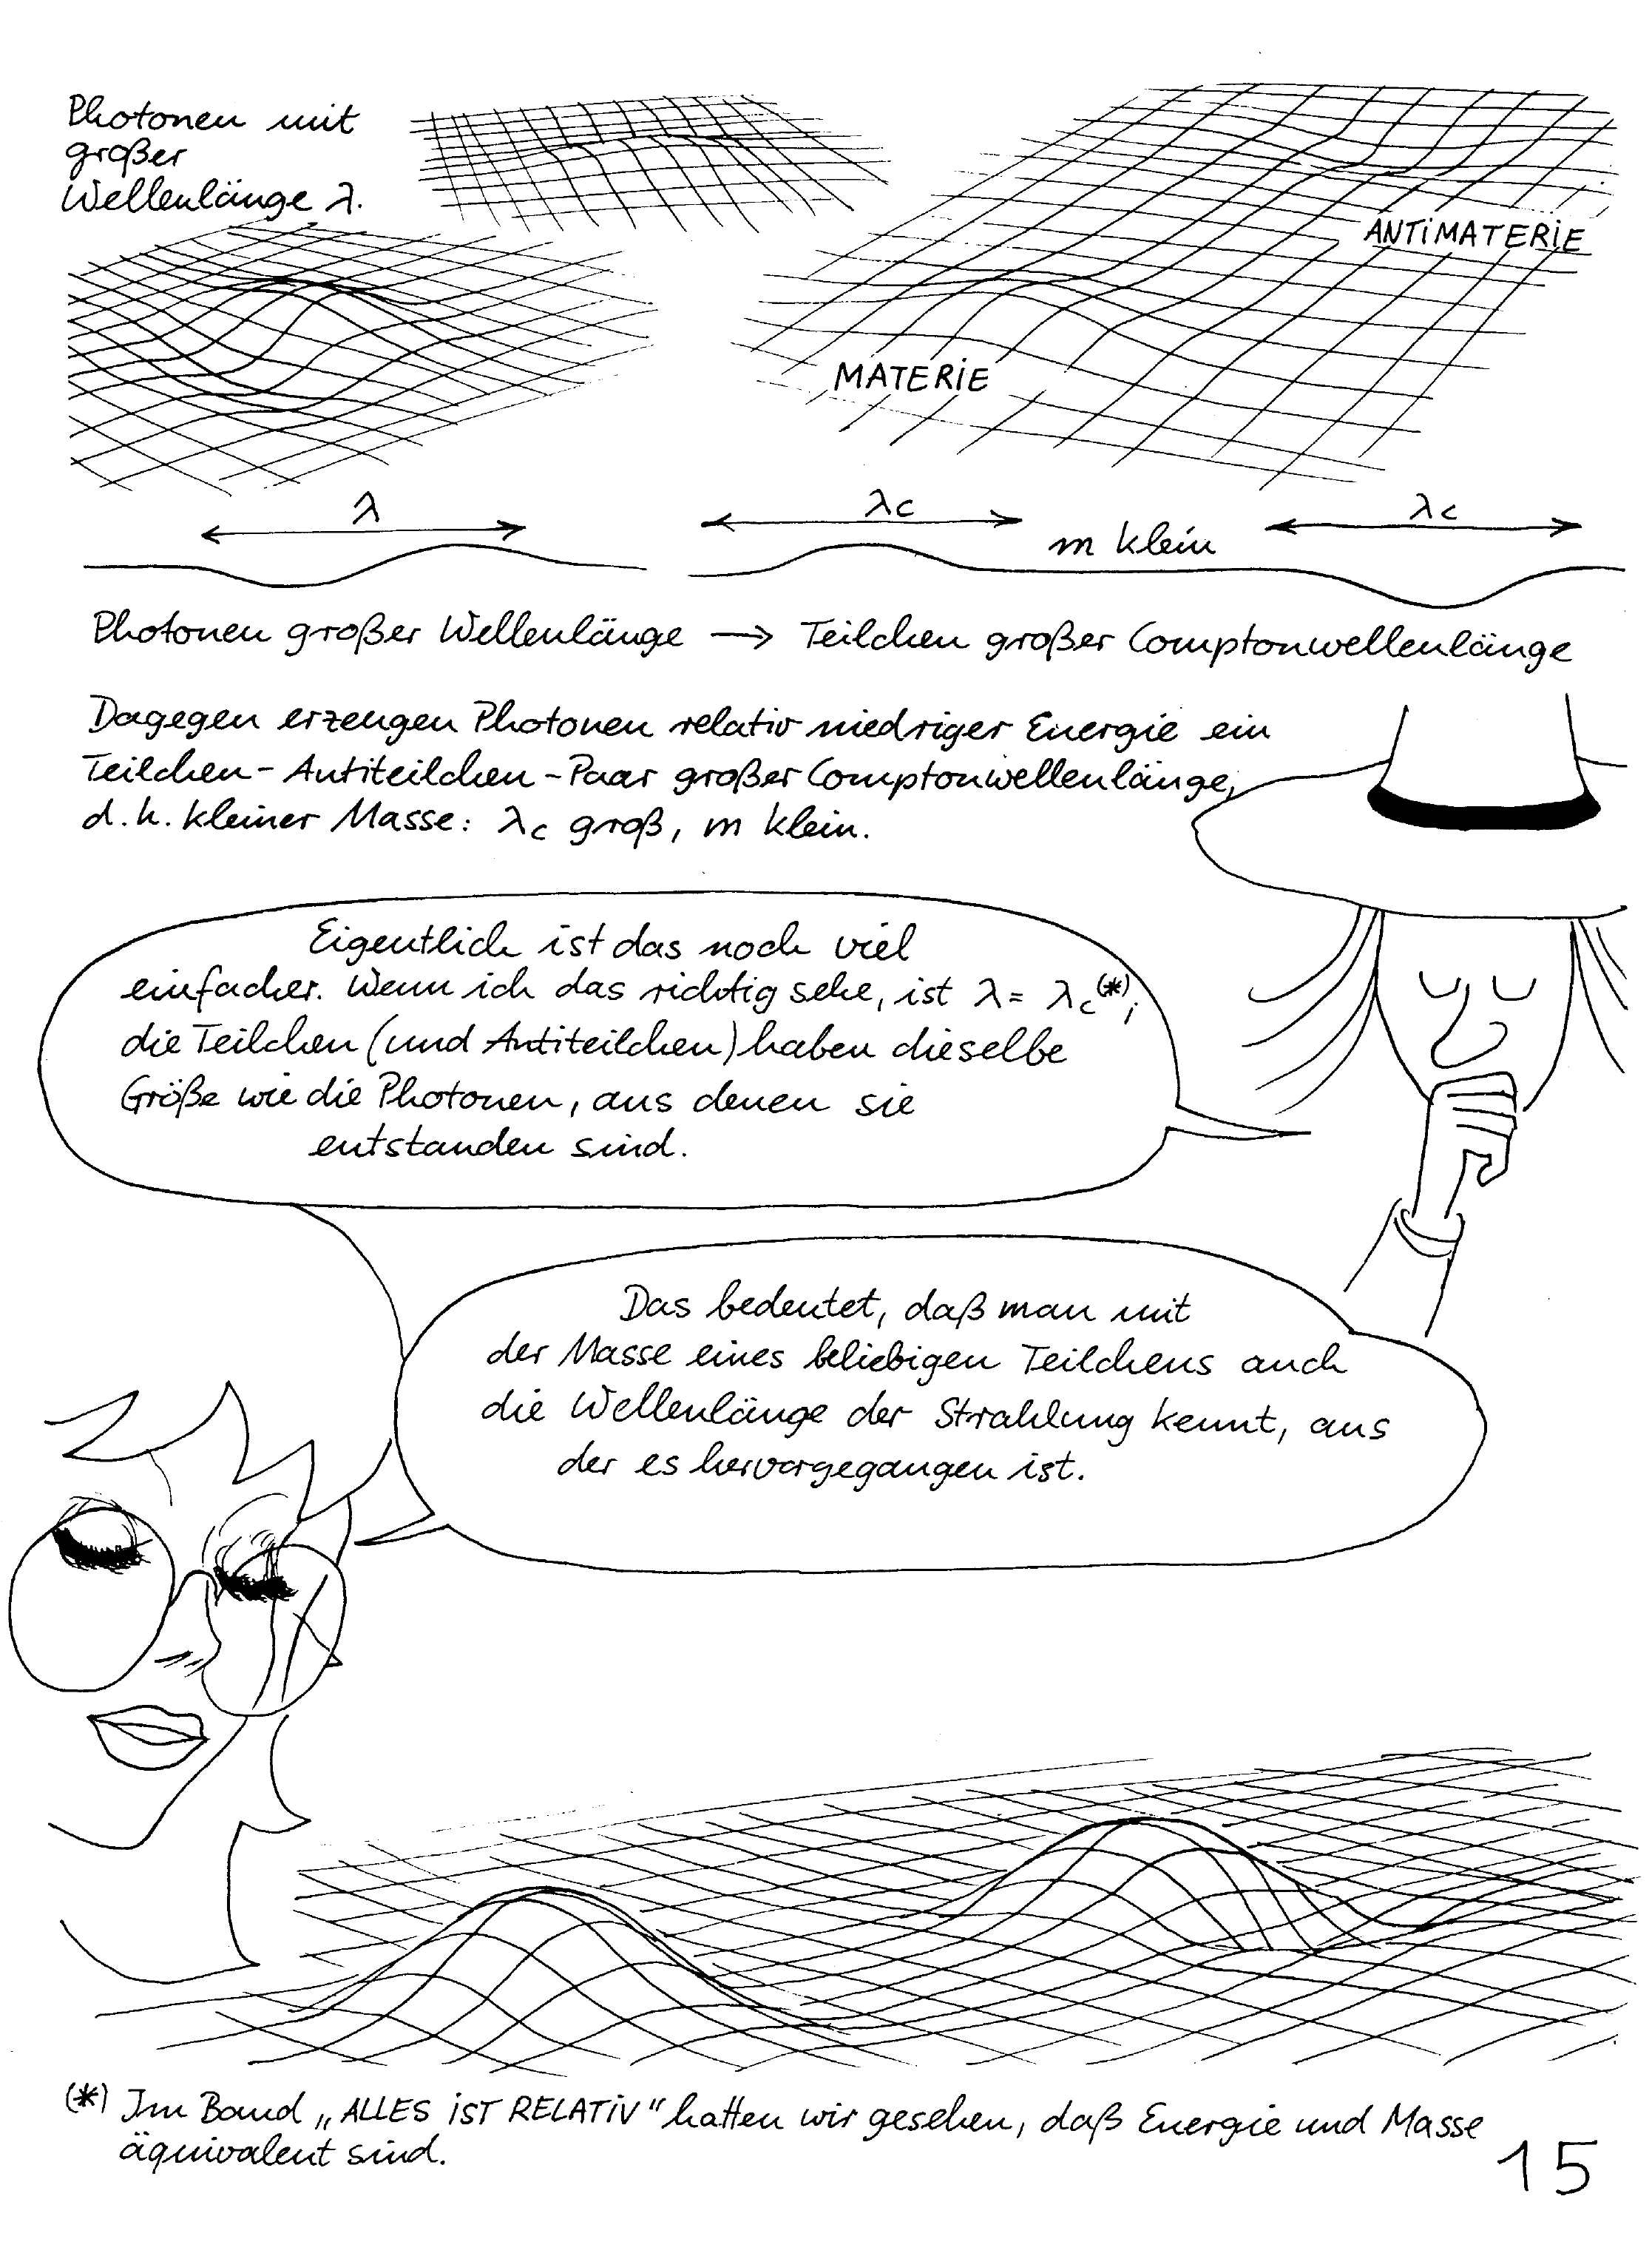 Photonen mit
großer
Wellenlänge λ.
ANTIMATERIE
MATERIE
λ
λc
λc
m klein
Photonen großer Wellenlänge → Teilchen großer Comptonwellenlänge
Dagegen erzeugen Photonen relativ niedriger Energie ein
Teilchen-Antiteilchen-Paar großer Comptonwellenlänge,
d.h. kleiner Masse: λc groß, m klein.
Eigentlich ist das noch viel
einfacher. Wenn ich das richtig sehe, ist λ = λc(*);
die Teilchen (und Antiteilchen) haben dieselbe
Größe wie die Photonen, aus denen sie
entstanden sind.
Das bedeutet, daß man mit
der Masse eines beliebigen Teilchens auch
die Wellenlänge der Strahlung kennt, aus
der es hervorgegangen ist.
(*) Im Band „ALLES IST RELATIV" hatten wir gesehen, daß Energie und Masse
äquivalent sind.
15